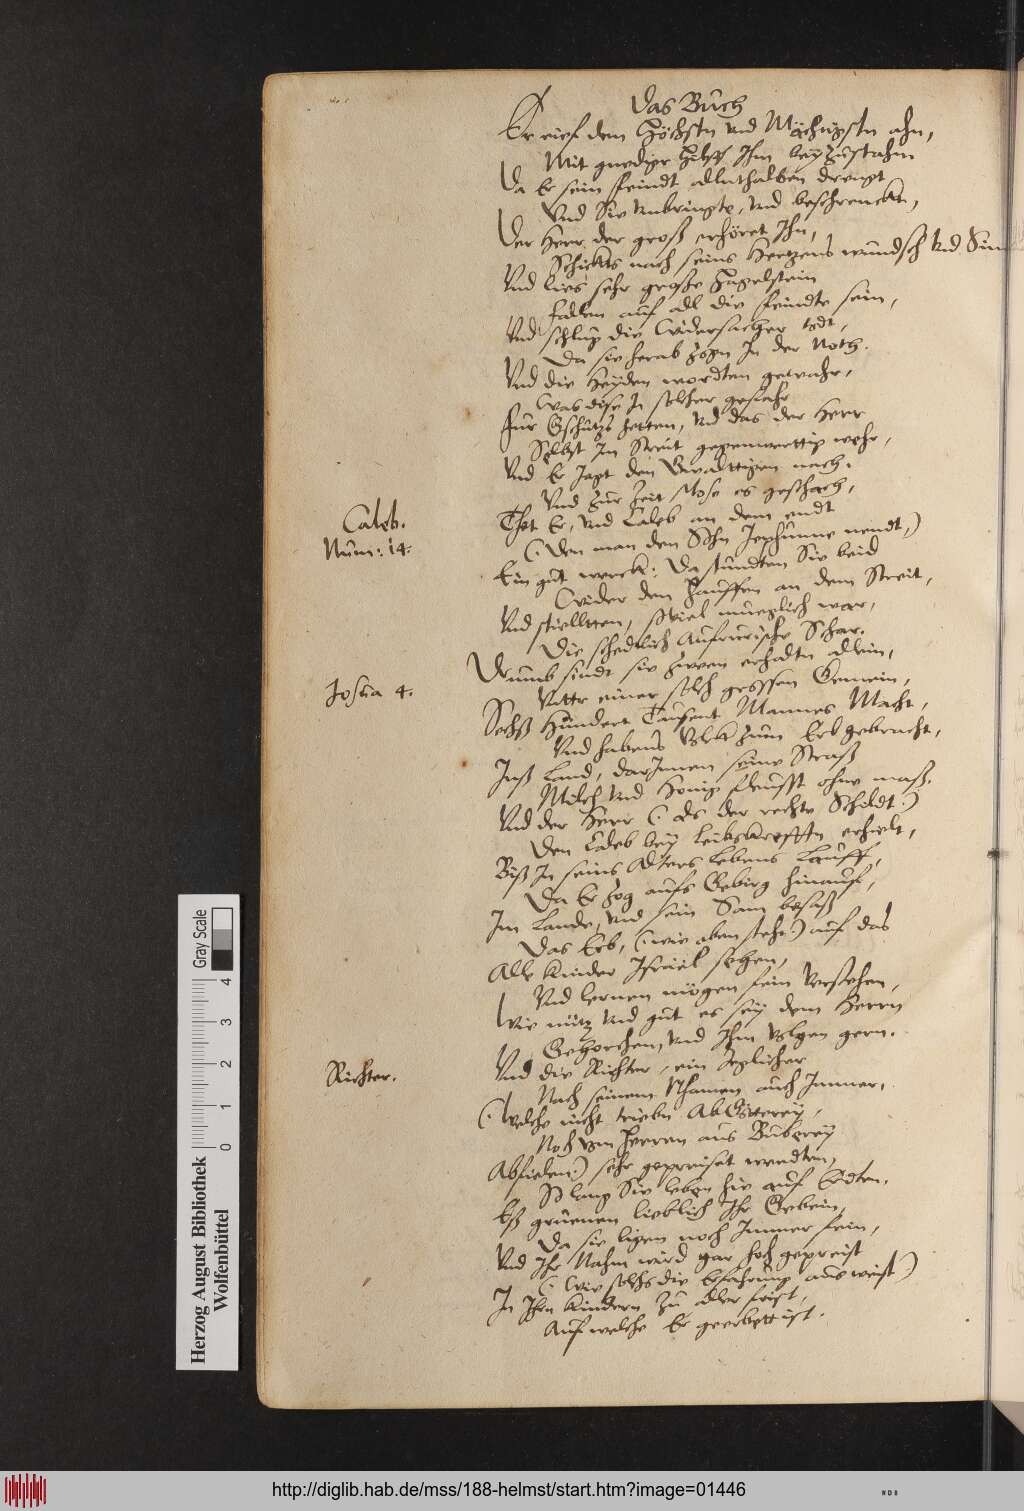 Das Buch
Er rief dem Höchstn vnd Mächtigstn ahn,
Mit gnediger Hilff Ihm beyzustahn
Da Er sein feindt allenthalben drengt
Vnd Sie vmbringte, vnd beschrenckt,
Der Herr der groß erhöret Ihn,
Schickts nach seins Hertzens wundsch vnd Sin
Vnd lies sehr große Hagelstein
fallen auf all die feindte sein,
Vnd schlug die Widersacher todt,
Da sie herab zogn In der Noth.
Vnd die Heyden wordten gewahr,
Was dise In solcher gefahr
für Gschütz hetten, vnd das der Herr
Selbst Im Streit gegenwerttig wehr,
Vnd Er Jagt den Gwalttigen nach.
Vnd zur Zeit Mose es geschach,
Thet Er, vnd Caleb an dem endt
(Den man den Sohn Jephunne nendt,)
Ein gut werck: Da stundten Sie beid
Wider den Hauffen an dem Streit,
Vnd stiellten, soviel mueglich war,
Die schedtlich Aufrurische Schar.
Drumb sindt sie zween erhaltn allein,
Vntter einer solch grossen Gemein,
Caleb.
Num: 14.
Sechß Hundert Tausent Mannes Macht,
Vnd habens Volck zum Erb gebracht,
Josua 4.
Inß Land, darInnen seine Straß
Milch vnd Honig fleusst ohne maß.
Vnd der Herr (: als der rechte Schildt:)
Den Caleb bey leibskrefftn erhielt,
Biß In seins Alters lebens Lauff,
Da Er zog aufs Gebirg hinauf,
Im Lande, vnd sein Sam besaß
Das Erb, (: wie oben steht:) auf das
Alle Kinder Israel sehen,
Vnd lernen mögen fein verstehen,
Wie nütz vnd gut es sey dem Herrn
Gehorchen, vnd Ihm volgen gern.
Richter.
Vnd die Richter, ein Jeglicher
Nach seinem Nhamen auch Immer,
(: Welche nicht trieben Abgötterey,
Noch vom Herren aus Buberey
Abfielen:) sehr gepreiset werdten,
So lang Sie leben hie auf Erdten.
Eß gruenen lieblich Ihr Gebein,
Da sie ligen noch Immer fein,
Vnd Ihr Nahm wird gar hoch gepreist
(: Wie solchs die Erfahrung ausweist:)
In Ihrn Kindern zu aller frist,
Auf welche Er geerbett ist.
Gray Scale
0 1 2 3 4
Herzog August Bibliothek
Wolfenbüttel
http://diglib.hab.de/mss/188-helmst/start.htm?image=01446